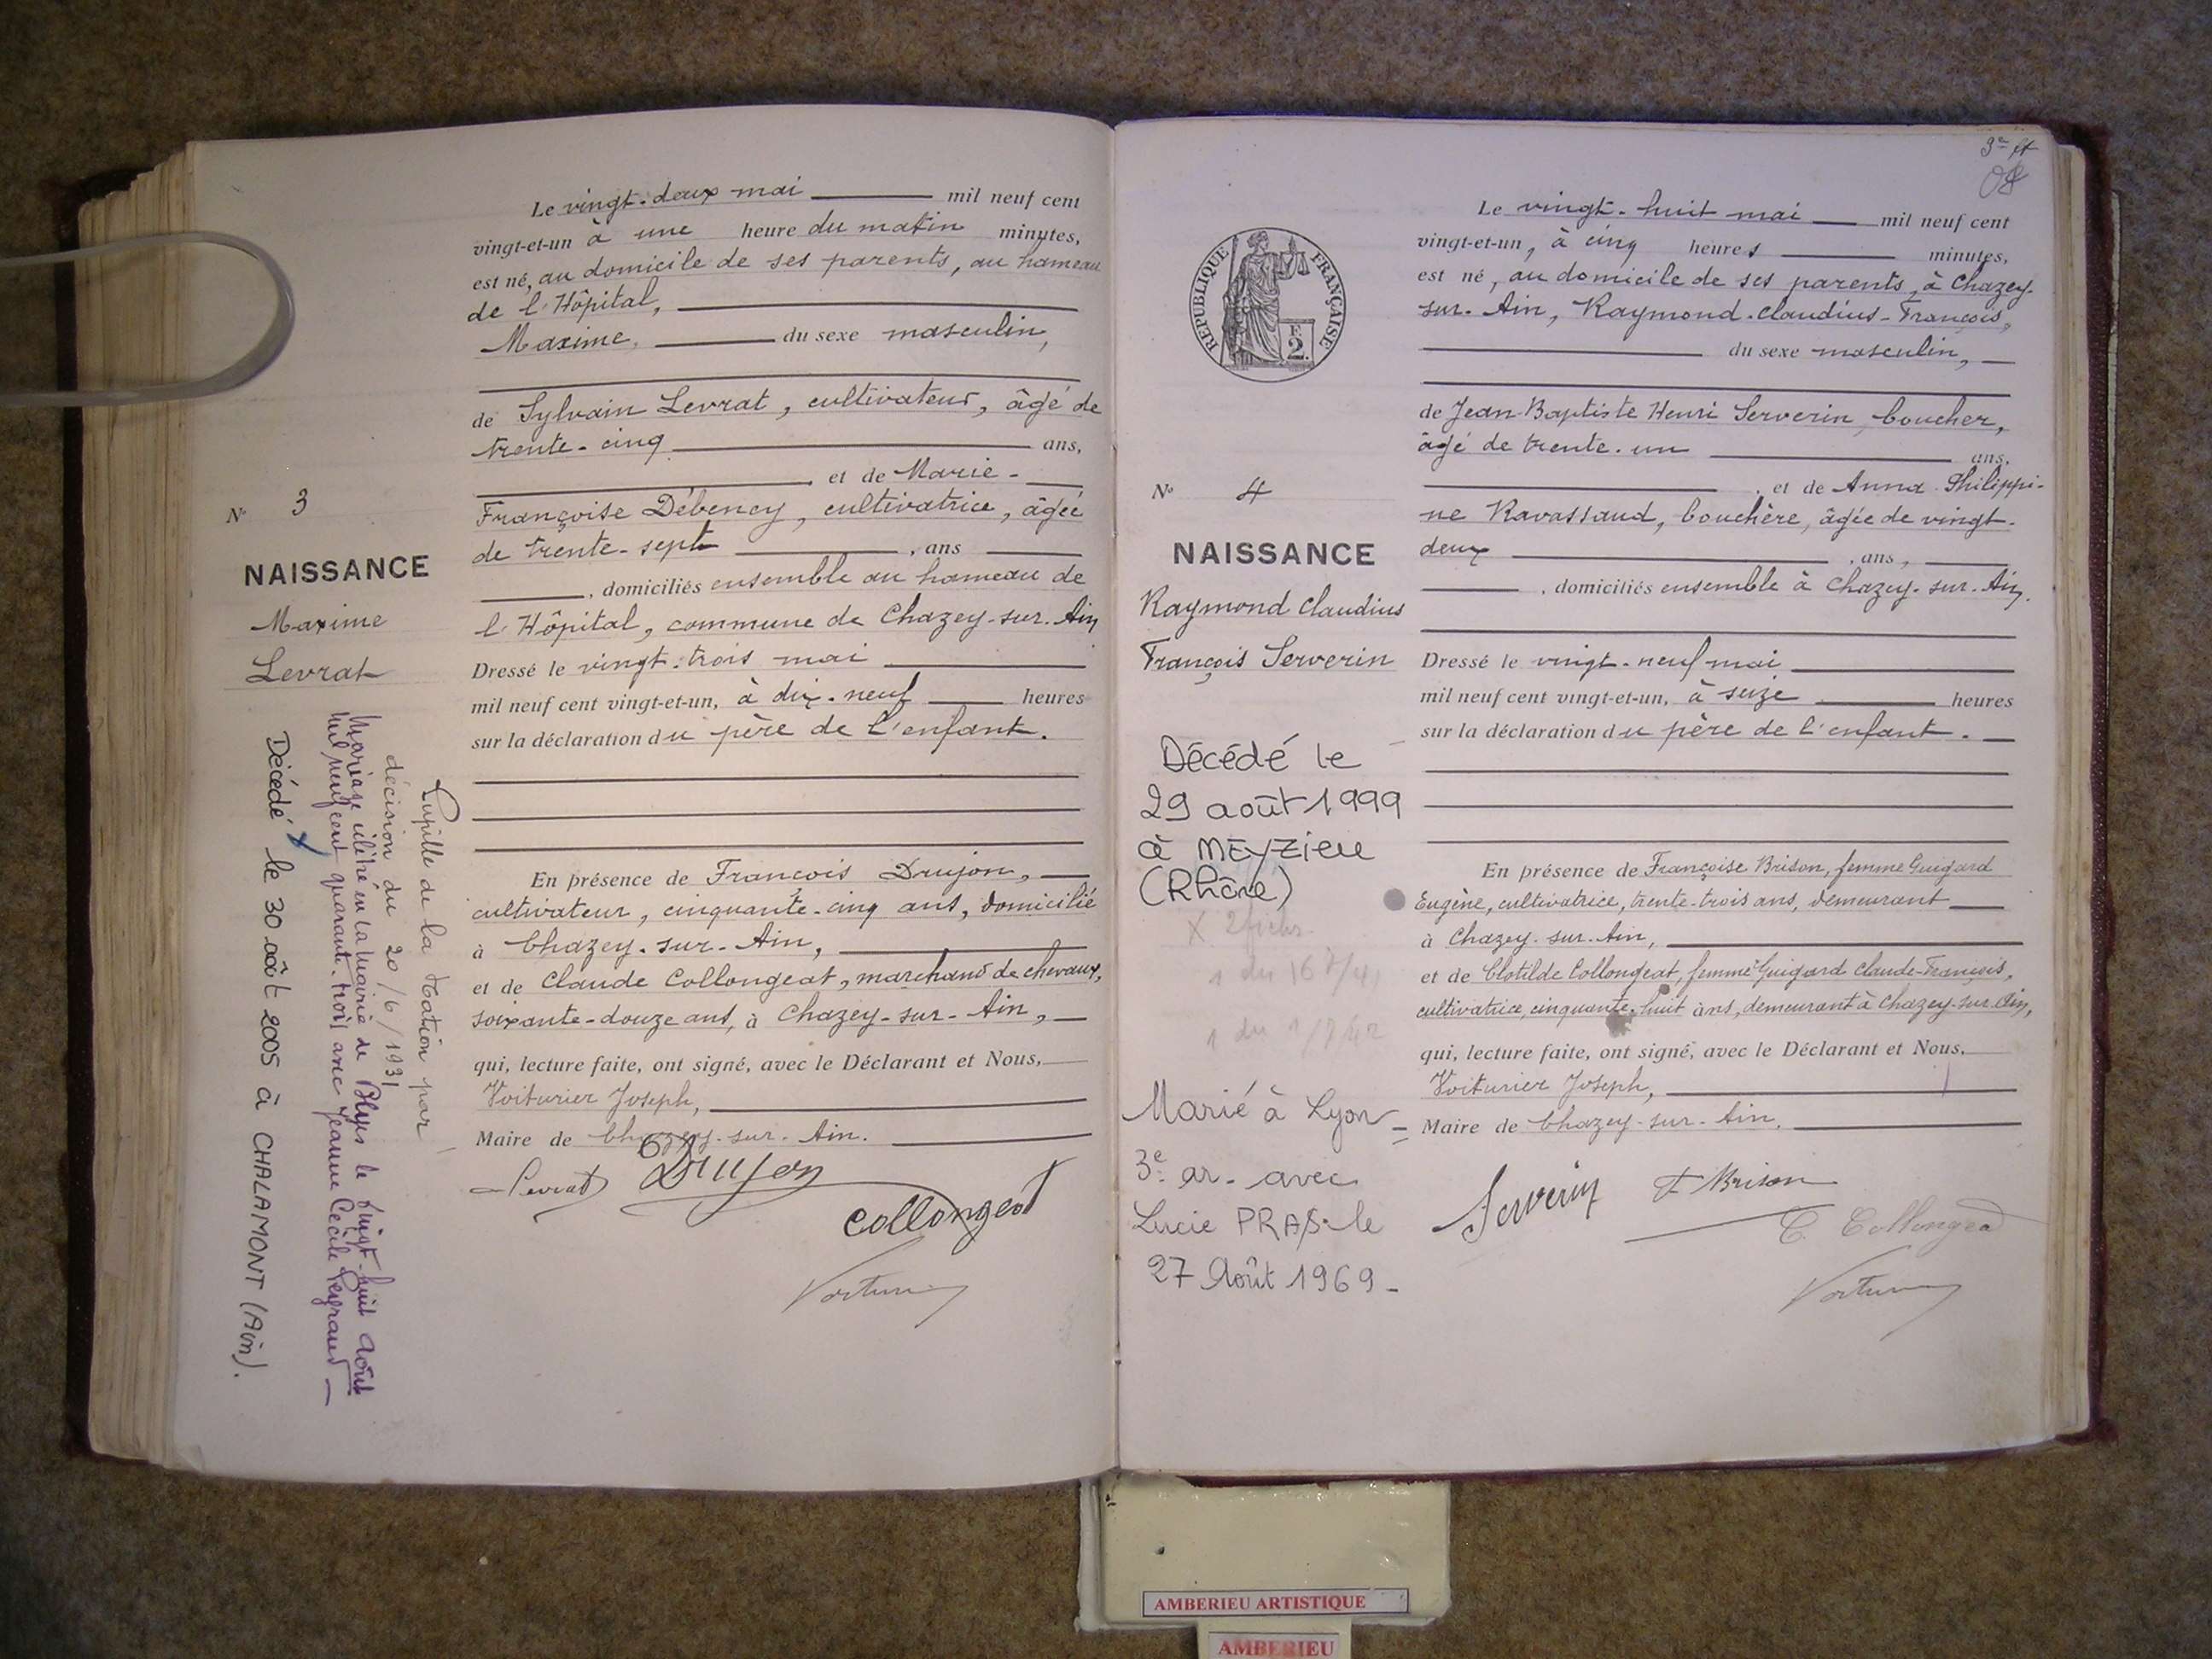 Le vingt-deux mai mil neuf cent
vingt-et-un à une heure du matin minutes,
est né, au domicile de ses parents, au hameau
de l'Hôpital,
Maxime, du sexe masculin,
de Sylvain Levrat, cultivateur, âgé de
trente-cinq ans,
et de Marie-
Françoise Débeney, cultivatrice, âgée
de trente-sept, ans
, domiciliés ensemble au hameau de
l'Hôpital, commune de Chazey-sur-Ain
Dressé le vingt-trois mai
mil neuf cent vingt-et-un, à dix-neuf heures
sur la déclaration du père de l'enfant.
En présence de François Drujon,
cultivateur, cinquante-cinq ans, domicilié
à Chazey-sur-Ain,
et de Claude Collongeat, marchand de chevaux,
soixante-douze ans, à Chazey-sur-Ain,
qui, lecture faite, ont signé, avec le Déclarant et Nous,
Voiturier Joseph,
Maire de Chazey-sur-Ain.
Levrat Drujon
Collongeat
N° 3
NAISSANCE
Maxime
Levrat
Pupille de la Nation par
décision du 20/6/1931
Mariage célébré en la Mairie de Blyes le vingt-huit août
mil neuf cent quarante-trois avec Jeanne Cécile Peyraud
Décédé le 30 août 2005 à CHALAMONT (Ain).
3e ft
REPUBLIQUE FRANÇAISE
F.
2.
Le vingt-huit mai mil neuf cent
vingt-et-un, à cinq heures minutes,
est né, au domicile de ses parents, à Chazey-
sur-Ain, Raymond-Claudius-François,
du sexe masculin,
de Jean-Baptiste Henri Serverin, boucher,
âgé de trente-un ans,
, et de Anna Philippi-
ne Ravassaud, bouchère, âgée de vingt-
deux, ans,
, domiciliés ensemble à Chazey-sur-Ain.
Dressé le vingt-neuf mai
mil neuf cent vingt-et-un, à seize heures
sur la déclaration du père de l'enfant.
En présence de Françoise Brison, femme Guigard
Eugène, cultivatrice, trente-trois ans, demeurant
à Chazey-sur-Ain,
et de Clotilde Collongeat, femme Guigard Claude-François,
cultivatrice, cinquante-huit ans, demeurant à Chazey-sur-Ain,
qui, lecture faite, ont signé, avec le Déclarant et Nous,
Voiturier Joseph,
Maire de Chazey-sur-Ain.
Serverin F Brison
C. Collongeat
N° 4
NAISSANCE
Raymond Claudius
François Serverin
Décédé le
29 août 1999
à MEYZIEU
(Rhône)
Marié à Lyon
3e ar. avec
Lucie PRAS le
27 Août 1969
AMBERIEU ARTISTIQUE
AMBERIEU